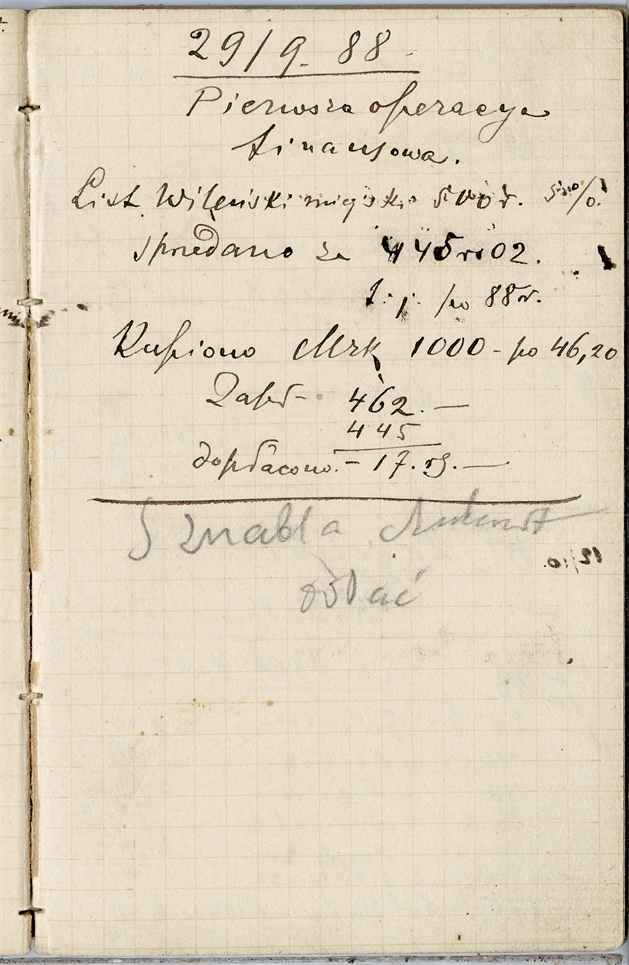 29/9. 88
Pierwsza operacya
finansowa.
List Wileński miejski 500 r. 5%
sprzedano za 445 rs 02.
t. j. po 88 r.
Kupiono Mrk 1000 - po 46,20
Zapł - 462. —
445
dopłacono. - 17. rs. —
Sznabla
oddać